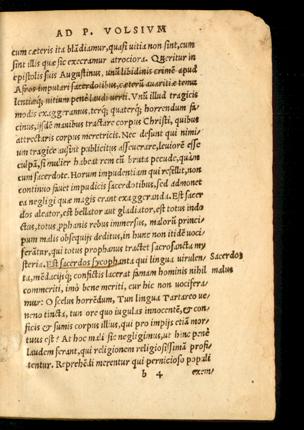 AD P. VOLSIVM
cum cæteris ita blādiamur, quasi uitia non sint, cum
sint illis quæ sic execramur atrociora. Queritur in
epistolis suis Augustinus, unū libidinis crimē apud
Afros imputari sacerdotibus, cæterū auaritiæ temu
lentiæq; uitium penè laudi uerti. Vnū illud tragicis
modis exaggeramus, terq; quaterq; horrendum fa-
cinus, ijsdē manibus tractare corpus Christi, quibus
attrectaris corpus meretricis. Nec desunt qui nimi-
um tragicè ausint publicitus asseuerare, leuiorē esse
culpā, si mulier habeat rem cū bruta pecude, quàm
cum sacerdote. Horum impudentiam qui refellit, non
continuo fauet impudicis sacerdotibus, sed admonet
ea negligi quæ magis erant exaggeranda. Est sacer
dos aleator, est bellator aut gladiator, est totus indo
ctus, totus pphanis rebus immersus, malorū princi
pum malis obsequijs deditus, in hunc non itidē uoci
ferātur, qui totus prophanus tractet sacrosancta my
steria. Est sacerdos sycophanta qui lingua uirulen- Sacerdos
ta, mēdacijsq; confictis lacerat famam hominis nihil malus
commeriti, imò bene meriti, cur hic non uocifera-
mur: O scelus horrēdum, Tun lingua Tartareo ue-
neno tincta, tun ore quo iugulas innocentē, & con-
ficis & sumis corpus illius, qui pro impijs etiā mor-
tuus est? At hoc mali sic negligimus, ut hinc penè
laudem ferant, qui religionem religiosissimā profi-
tentur. Reprehēdi merentur qui pernicioso populi
b 4 exem-